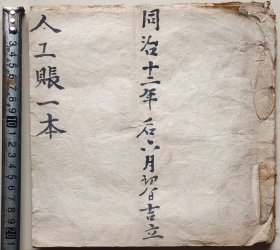 同治十二年后六月初八日吉立
人工賬一本